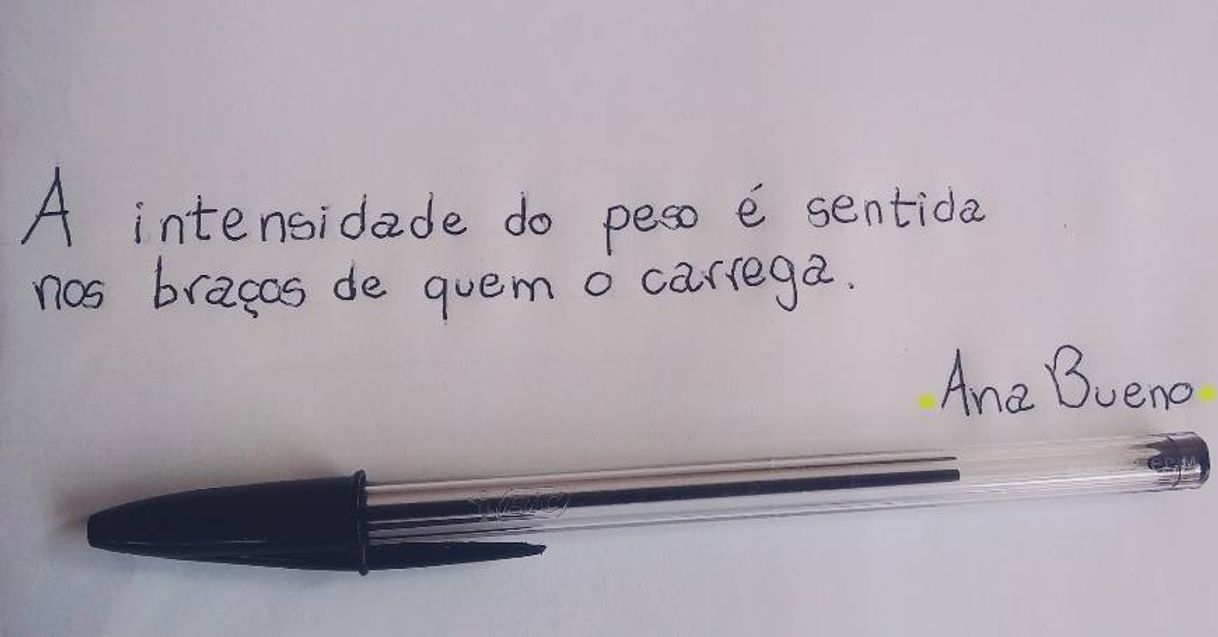 A intensidade do peso é sentida
nos braços de quem o carrega.
Ana Bueno